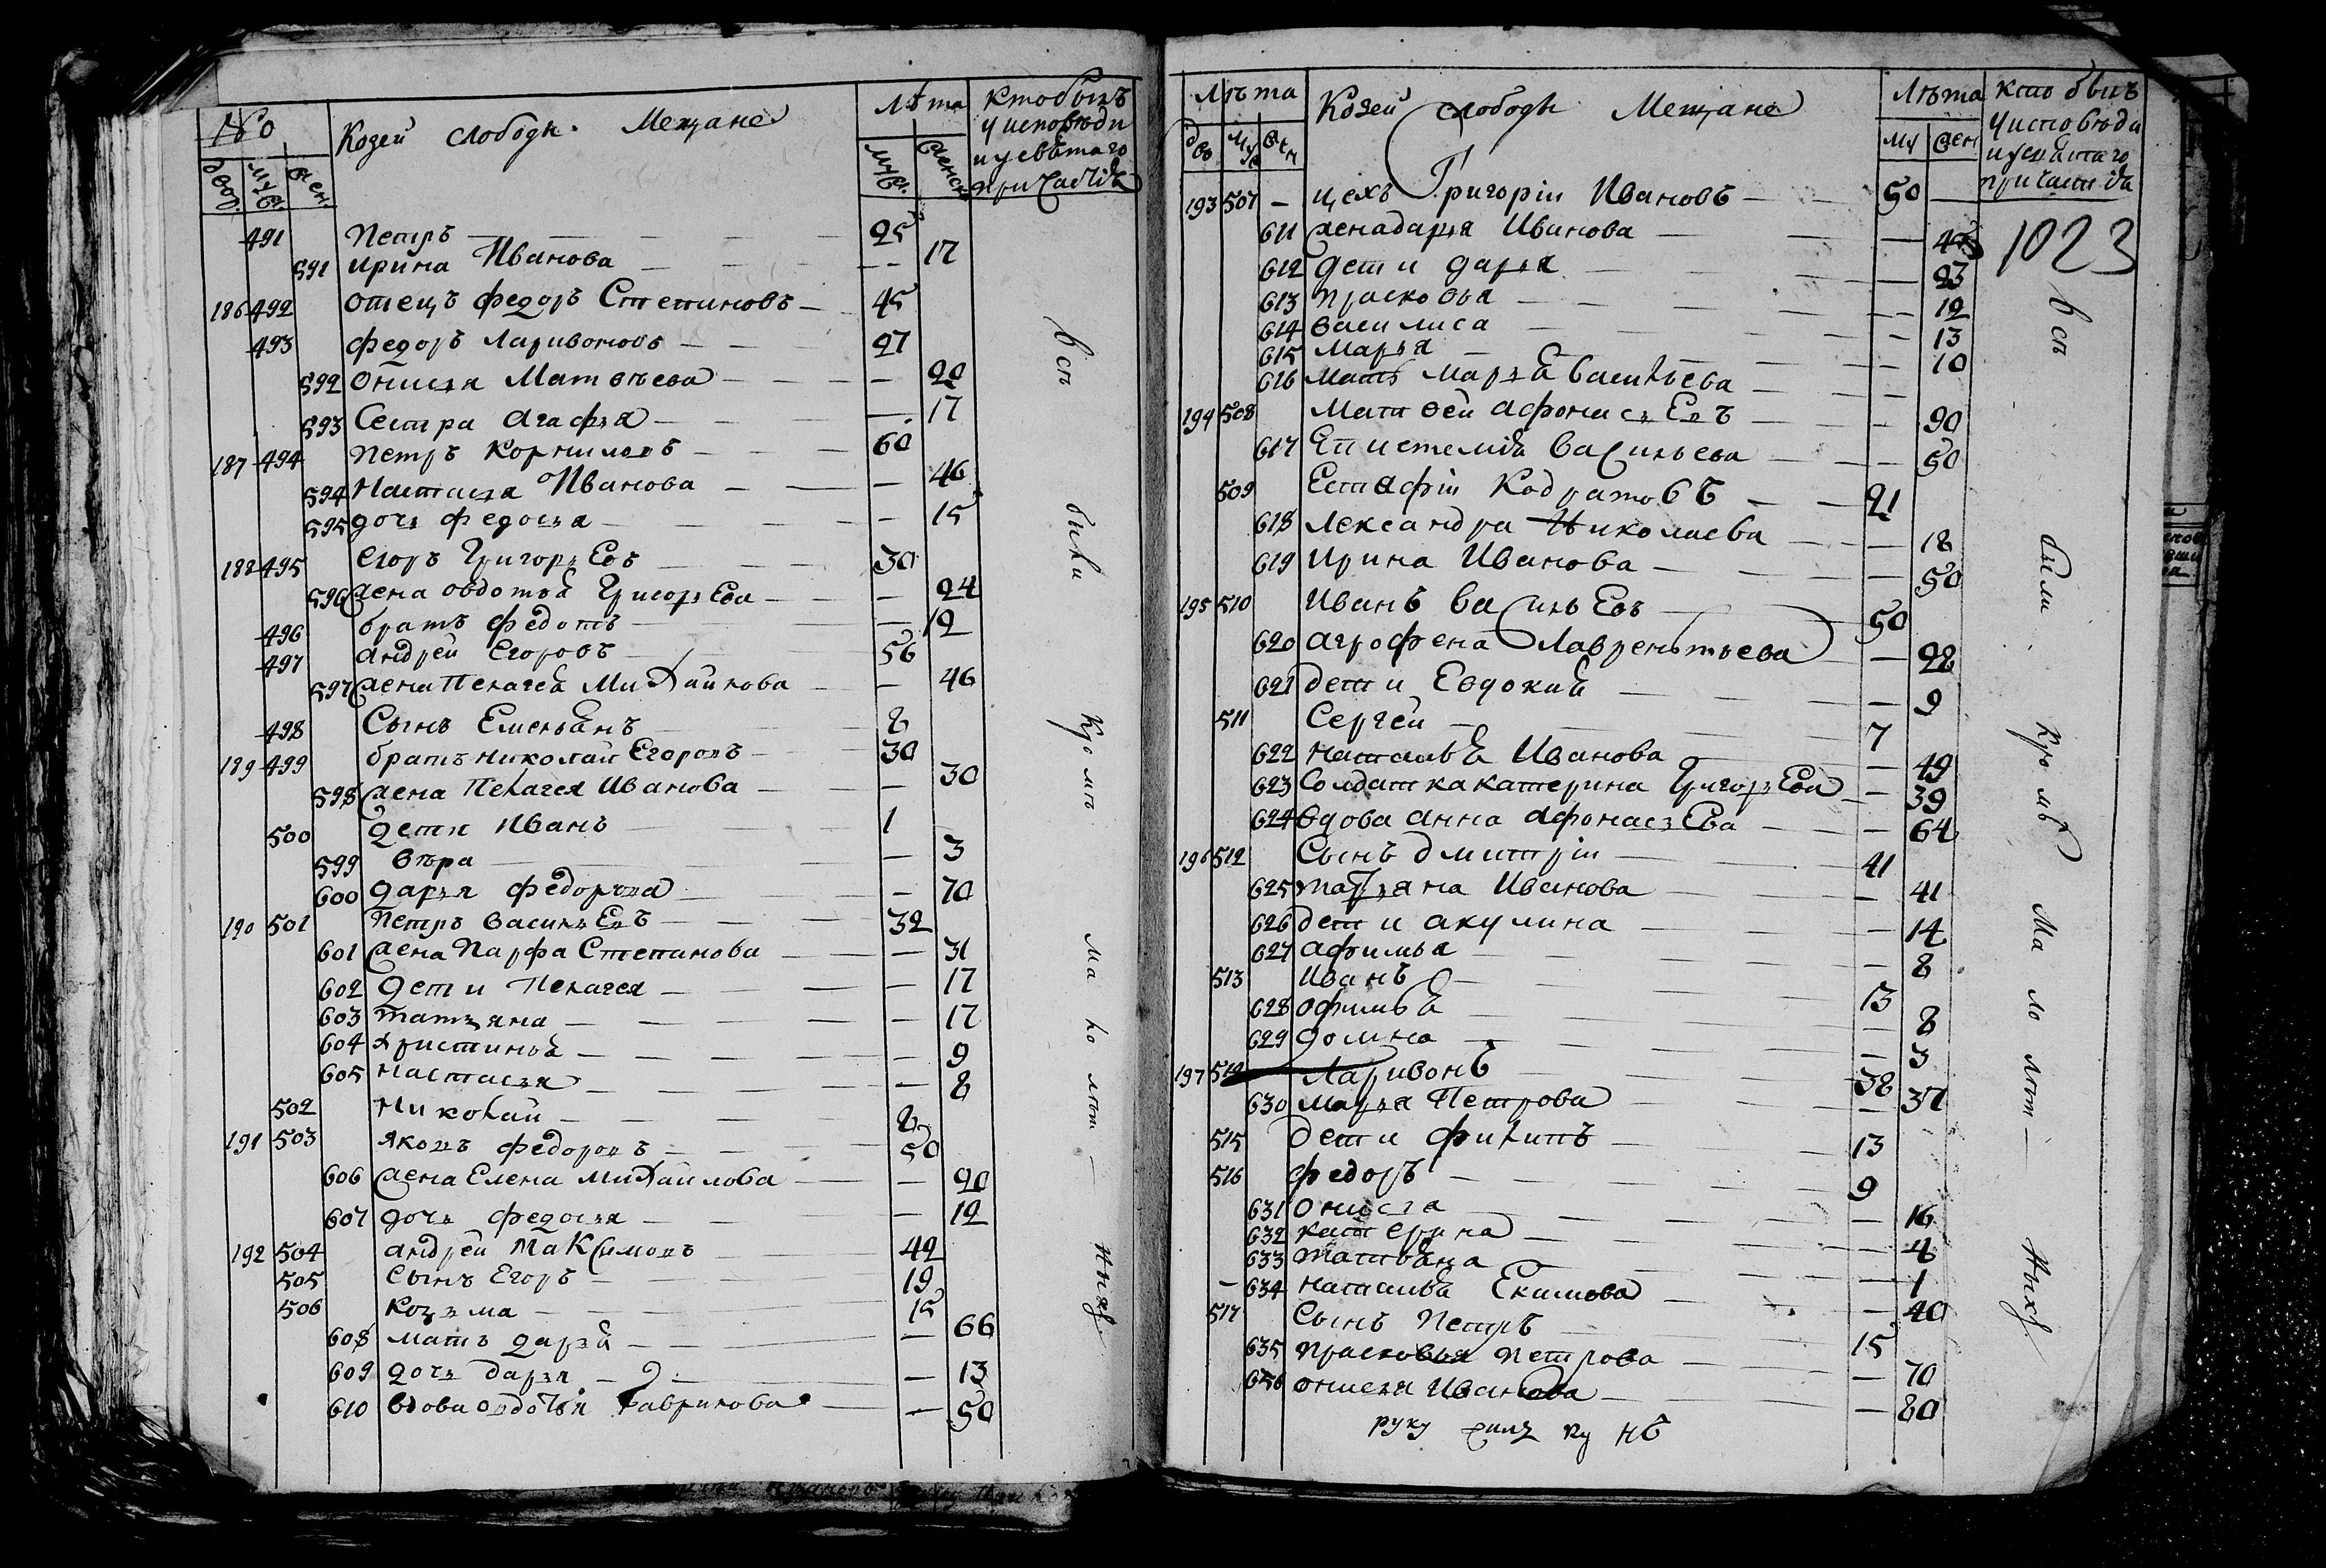 No Козей слободы Мещане Лѣта кто былъ
у исповѣди
и у свѣтаго
двор. муж. жен. муж. женск причастія
491 Петръ 25
591 Ирина Иванова 17
186 492 отецъ федоръ Степановъ 45
493 федоръ Ларивоновъ 27
592 Онисья Матвѣева 20
593 Сестра Агафья 17
187 494 Петръ Корниловъ 60
594 Настасья Иванова 46
595 дочь федосья 15
188 495 Егоръ Григорьевъ 30
596 жена овдотья Григорьева 24
496 братъ федотъ 12
497 андрей Егоровъ 56
597 жена Пелагея Михайлова 46
498 Сынъ Емельянъ 8
189 499 братъ николай Егоровъ 30
598 жена Пелагея Иванова 30
500 дети Иванъ 1
599 вѣра 3
600 дарья федорова 70
190 501 Петръ васильевъ 32
601 жена Марфа Степанова 31
602 дети Пелагея 17
603 татьяна 17
604 христинья 9
605 Настасья 8
502 Николай 8
191 503 яковъ федоровъ 50
606 жена Елена Михайлова 20
607 дочь федосья 12
192 504 андрей Максимовъ 42
505 сынъ Егоръ 19
506 козьма 15
608 мать дарья 66
609 дочь дарья 13
610 вдова овдотья Гаврилова 50
всѣ были кромѣ малолѣтныхъ
Лѣта Козей слободы Мещане Лѣта кто былъ
у исповѣди
и у свѣтаго
дво муж жен му жен причастія
193 507 цехъ Григоріи Ивановъ 50
1023
611 жена дарья Иванова
612 дети дарья 23
613 прасковья 12
614 василиса 13
615 Марья 10
616 мать марья васильева
194 508 Матвей афонасьевъ 90
617 Епистемия васильева 50
509 Естафіи Кодратовъ 21
618 Лександра Николаева 18
619 Ирина Иванова 50
195 510 Иванъ васильевъ 50
620 агрофена Лаврентьева 28
621 дети Евдокия 9
511 Сергей 7
622 наталья Иванова 49
623 Солдатка катерина Григорьева 39
624 вдова анна афонасьева 64
196 512 Сынъ дмитріи 41
625 татьяна Иванова 41
626 дети акулина 14
627 афимья 8
513 Иванъ 13
628 офимья 8
629 домна 3
197 514 Ларивонъ 38
630 марья Петрова 37
515 дети филипъ 13
516 федоръ 9
631 онисья 16
632 катерина 4
633 татьяна 1
634 наталья Екимова 40
517 Сынъ Петръ 15
635 прасковья петрова 70
636 онисья Иванова 80
руку
всѣ были кромѣ малолѣтныхъ